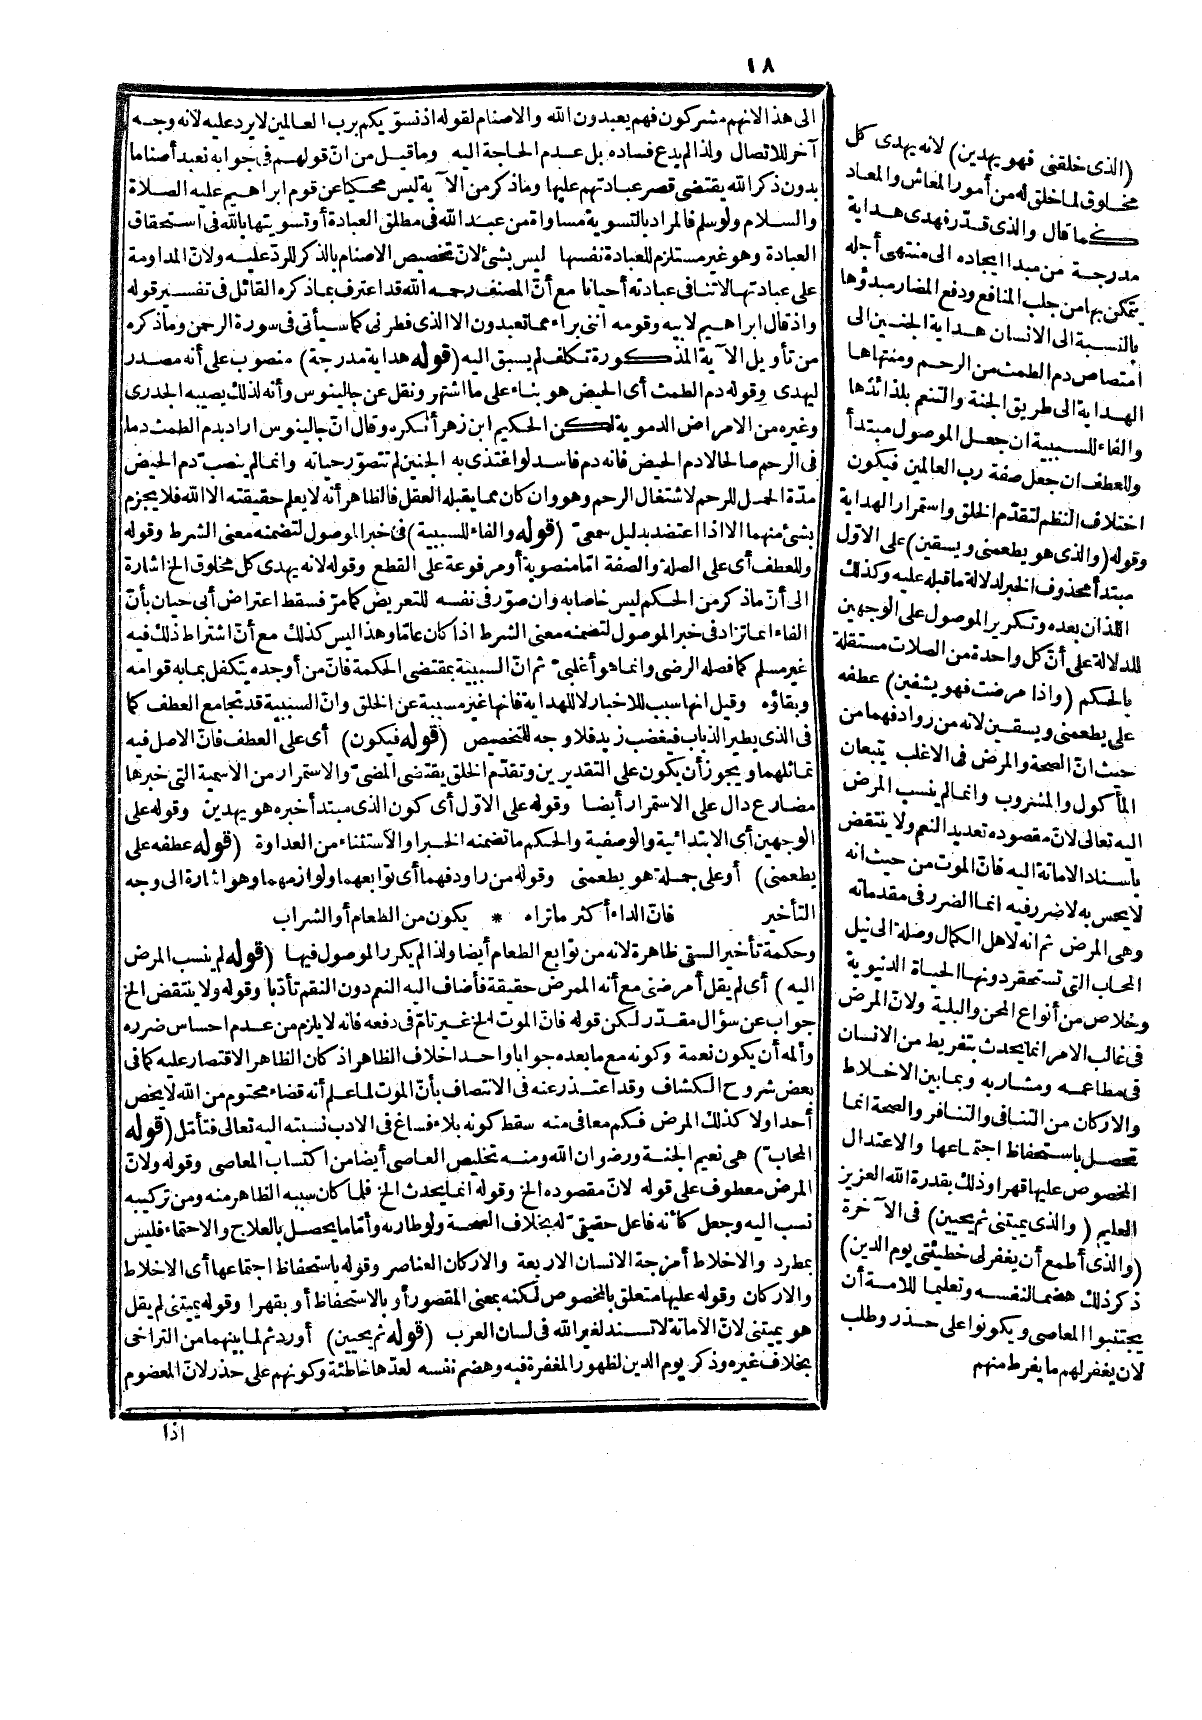 ١٨
الى هذا الانهم مشركون فهم يعبدون الله والاصنام لقوله اذ نسوّيكم برب العالمين لا يرد عليه لانه وجه
آخر للاتصال ولذا لم يدع فساده بل عدم الحاجة اليه وما قيل من انّ قولهم فى جوابه نعبد أصناما
بدون ذكر الله يقتضى قصر عبادتهم عليها وما ذكر من الآية ليس محكيا عن قوم ابراهيم عليه الصلاة
والسلام ولو سلم فالمراد بالتسوية مساواة من عبد الله فى مطلق العبادة أو تسويتها بالله فى استحقاق
العبادة وهو غير مستلزم للعبادة نفسها ليس بشئ لانّ تخصيص الاصنام بالذكر للردّ عليه ولانّ المداومة
على عبادتها لا تنافى عبادته أحيانا مع أنّ المصنف رحمه الله قد اعترف بما ذكره القائل فى تفسير قوله
واذ قال ابراهيم لابيه وقومه اننى براء مما تعبدون الا الذى فطرنى كما سيأتى فى سورة الزخرف وما ذكره
من تأويل الآية المذكورة تكلف لم يسبق اليه (قوله هداية مدرجة) منصوب على أنه مصدر
ليهدى وقوله دم الطمث أى الحيض هو بناء على ما اشتهر ونقل عن جالينوس وأنه لذلك يصيبه الجدرى
وغيره من الامراض الدموية لكن الحكيم ابن زهر أنكره وقال انّ جالينوس اراد بدم الطمث دما
فى الرحم صالحا لا دم الحيض فانه دم فاسد لو اغتذى به الجنين لم تتصوّر حياته وانما لم ينصبّ دم الحيض
مدّة الحمل للرحم لاشتغال الرحم وهو وان كان مما يقبله العقل فالظاهر أنه لا يعلم حقيقته الا الله فلا يجزم
بشئ منهما الا اذا اعتضد بدليل سمعىّ (قوله والفاء للسببية) فى خبر الموصول لتضمنه معنى الشرط وقوله
وللعطف أى على الصلة والصفة امّا منصوبة أو مرفوعة على القطع وقوله لانه يهدى كل مخلوق الخ اشارة
الى أنّ ما ذكر من الحكم ليس خاصا به وان صوّر فى نفسه للتعريض كما مرّ فسقط اعتراض أبى حيان بأنّ
الفاء انما تزاد فى خبر الموصول لتضمنه معنى الشرط اذا كان عامّا وهذا ليس كذلك مع أنّ اشتراط ذلك فيه
غير مسلم كما فصله الرضى وانما هو أغلبىّ ثم انّ السببية بمقتضى الحكمة فانّ من أوجده يتكفل بما به قوامه
وبقاؤه وقيل انها سبب للاخبار لا للهداية فانها غير مسببة عن الخلق وانّ السببية قد تجامع العطف كما
فى الذى يطير الذباب فيغضب زيد فلا وجه للتخصيص (قوله فيكون) أى على العطف فانّ الاصل فيه
تماثلهما ويجوز أن يكون على التقديرين وتقدّم الخلق يقتضى المضىّ والاستمرار من الاسمية التى خبرها
مضارع دال على الاستمرار أيضا وقوله على الاوّل أى كون الذى مبتدأ خبره هو يهدين وقوله على
الوجهين أى الابتدائية والوصفية والحكم ما تضمنه الخبر او الاستثناء من العداوة (قوله عطفه على
يطعمنى) أو على جملة هو يطعمنى وقوله من روادفهما أى توابعهما ولوازمهما وهو اشارة الى وجه
التأخير فانّ الداء أكثر ما تراه * يكون من الطعام أو الشراب
وحكمة تأخير السقى ظاهرة لانه من توابع الطعام أيضا ولذا لم يكرر الموصول فيها (قوله لم ينسب المرض
اليه) أى لم يقل أمرضنى مع أنه الممرض حقيقة فأضاف اليه النعم دون النقم تأدّبا وقوله ولا ينتقض الخ
جواب عن سؤال مقدّر لكن قوله فانّ الموت الخ غير تامّ فى دفعه فانه لا يلزم من عدم احساس ضرره
وألمه أن يكون نعمة وكونه مع ما بعده جوابا واحدا خلاف الظاهر اذ كان الظاهر الاقتصار عليه كما فى
بعض شروح الكشاف وقد اعتذر عنه فى الانتصاف بأنّ الموت لما علم أنه قضاء محتوم من الله لا يخص
أحدا ولا كذلك المرض فكم معافى منه سقط كونه بلاء فساغ فى الادب نسبته اليه تعالى فتأمّل (قوله
المحابّ) هى نعيم الجنة ورضوان الله ومنه تخليص العاصى أيضا من اكتساب المعاصى وقوله ولانّ
المرض معطوف على قوله لانّ مقصوده الخ وقوله انما يحدث الخ فلما كان سببه الظاهر منه ومن تركيبه
نسب اليه وجعل كأنه فاعل حقيقىّ له بخلاف الصحة ولو طارية وأمّا ما يحصل بالعلاج والاحتماء فليس
بمطرد والاخلاط أمزجة الانسان الاربعة والاركان العناصر وقوله باستحفاظ اجتماعها أى الاخلاط
والاركان وقوله عليها متعلق بالمخصوص لكنه بمعنى المقصور أو بالاستحفاظ أو بقهرا وقوله يميتنى لم يقل
هو يميتنى لانّ الاماتة لا تسند لغير الله فى لسان العرب (قوله ثم يحيين) أورد ثم لما بينهما من التراخى
بخلاف غيره وذكر يوم الدين لظهور المغفرة فيه وهضم نفسه لعدّها خاطئة وكونهم على حذر لانّ المعصوم
اذا
(الذى خلقنى فهو يهدين) لانه يهدى كل
مخلوق لما خلق له من أمور المعاش والمعاد
كما قال والذى قدّر فهدى هداية
مدرجة من مبدا ايجاده الى منتهى أجله
يتمكن بها من جلب المنافع ودفع المضار مبدؤها
بالنسبة الى الانسان هداية الجنين الى
امتصاص دم الطمث من الرحم ومنتهاها
الهداية الى طريق الجنة والتنعم بلذائذها
والفاء للسببية ان جعل الموصول مبتدأ
وللعطف ان جعل صفة رب العالمين فيكون
اختلاف النظم لتقدّم الخلق واستمرار الهداية
وقوله (والذى هو يطعمنى ويسقين) على الاوّل
مبتدأ محذوف الخبر لدلالة ما قبله عليه وكذلك
اللذان بعده وتكرير الموصول على الوجهين
للدلالة على أنّ كل واحدة من الصلات مستقلة
بالحكم (واذا مرضت فهو يشفين) عطفه
على يطعمنى ويسقين لانه من روادفهما من
حيث انّ الصحة والمرض فى الاغلب يتبعان
المأكول والمشروب وانما لم ينسب المرض
اليه تعالى لانّ مقصوده تعديد النعم ولا ينتقض
باسناد الاماتة اليه فانّ الموت من حيث انه
لا يحس به لا ضرر فيه انما الضرر فى مقدماته
وهى المرض ثم انه لاهل الكمال وصلة الى نيل
المحاب التى تستحقر دونها الحياة الدنيوية
وخلاص من أنواع المحن والبلية ولانّ المرض
فى غالب الامر انما يحدث بتفريط من الانسان
فى مطاعمه ومشاربه وبما بين الاخلاط
والاركان من التنافى والتنافر والصحة انما
تحصل باستحفاظ اجتماعها والاعتدال
المخصوص عليها قهرا وذلك بقدرة الله العزيز
العليم (والذى يميتنى ثم يحيين) فى الآخرة
(والذى أطمع أن يغفر لى خطيئتى يوم الدين)
ذكر ذلك هضما لنفسه وتعليما للامة أن
يجتنبوا المعاصى ويكونوا على حذر وطلب
لان يغفر لهم ما يفرط منهم